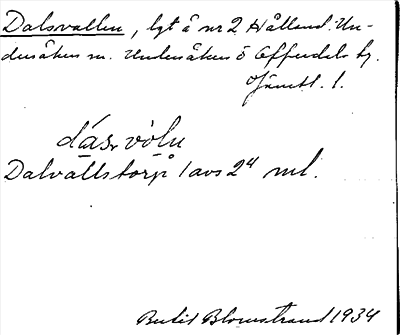 Dalsvallen, lgt å nr 2 Hålland. Un-
dersåkers sn. Undersåkers ö Offerdals tg.
Jämtl. l.
dásvòln
Dalvallstorp / avs 24 ml.
Bertil Blomstrand 1934